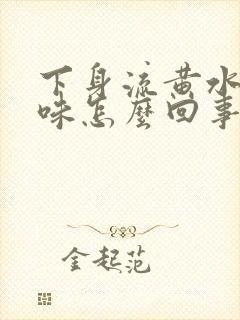 下身流黄水
味怎麼回事
金起范